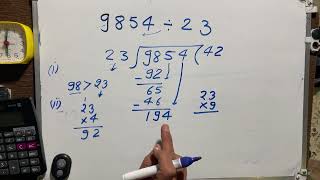 9854 ÷ 23
23 ) 9854 ( 42
(i)
- 92
98 > 23
65
(ii)
23
- 46
23
× 4
194
× 9
92